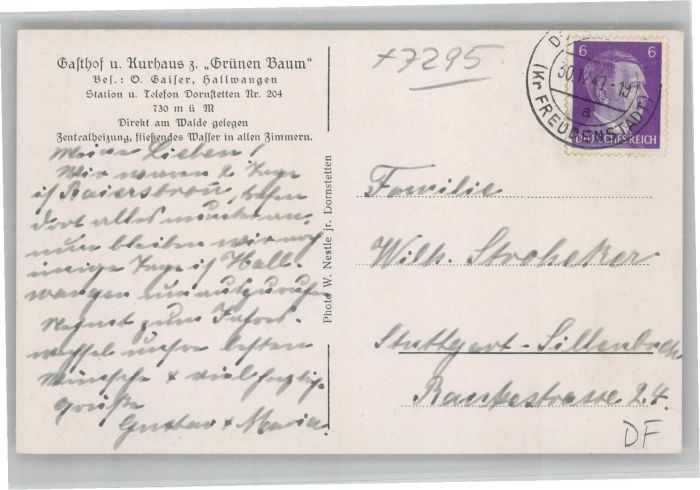 Gasthof u. Kurhaus z. „Grünen Baum“
Bes.: O. Gaiser, Hallwangen
Station u. Telefon Dornstetten Nr. 204
730 m ü M
Direkt am Walde gelegen
Zentralheizung, fließendes Wasser in allen Zimmern.
Meine Lieben!
Wir waren 2 Tage
in Baiersbronn, trafen
dort alles munter an,
nun bleiben wir noch
einige Tage in Hall-
wangen um auszuruhen
Nehmt zum Jahres-
wechsel unsre besten
Wünsche + viel herzliche
Grüße
Gustav + Maria.
Photo W. Nestle jr. Dornstetten
+7295
6 6
30.12.41.-19
a
(Kr. FREUDENSTADT)
DEUTSCHES REICH
Familie
Wilh. Stroheker
Stuttgart-Sillenbuch
Strasse 24.
DF